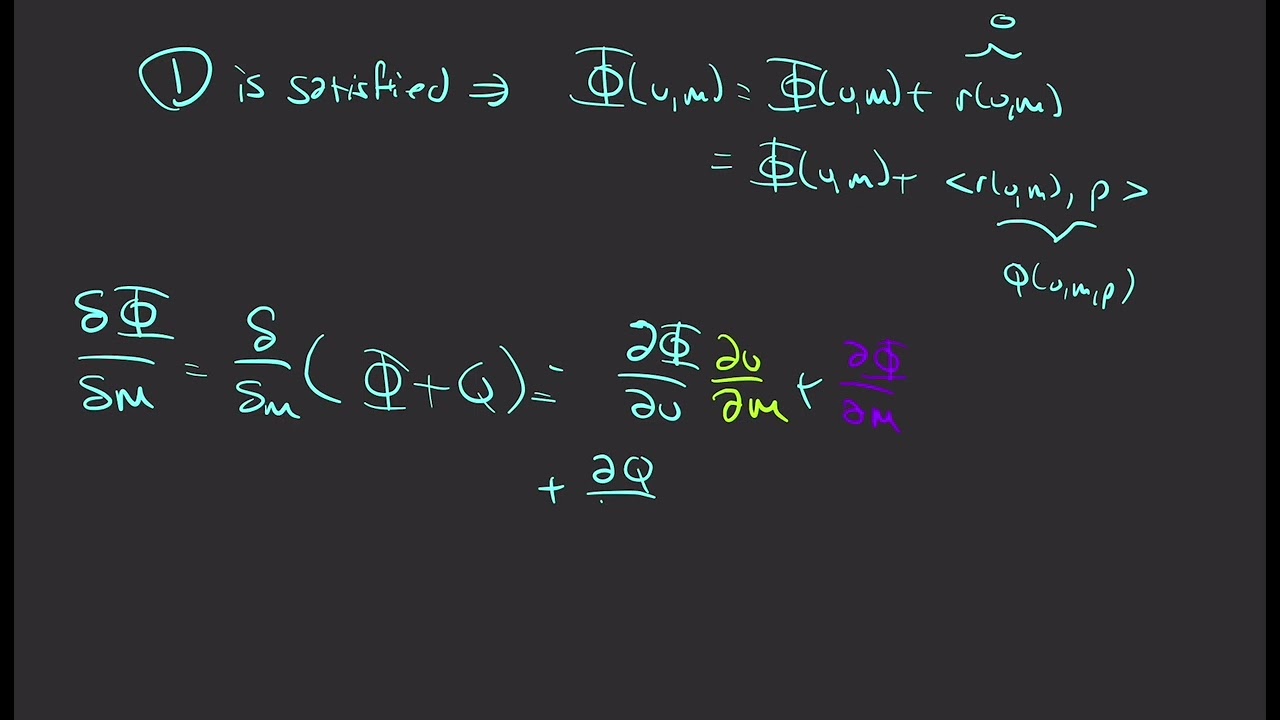 0
① is satisfied ⇒ Φ(u,m) = Φ(u,m) + r(u,m)
= Φ(u,m) + <r(u,m), p>
Q(u,m,p)
δΦ/δm = δ/δm (Φ + Q) = ∂Φ/∂u ∂u/∂m + ∂Φ/∂m
+ ∂Q